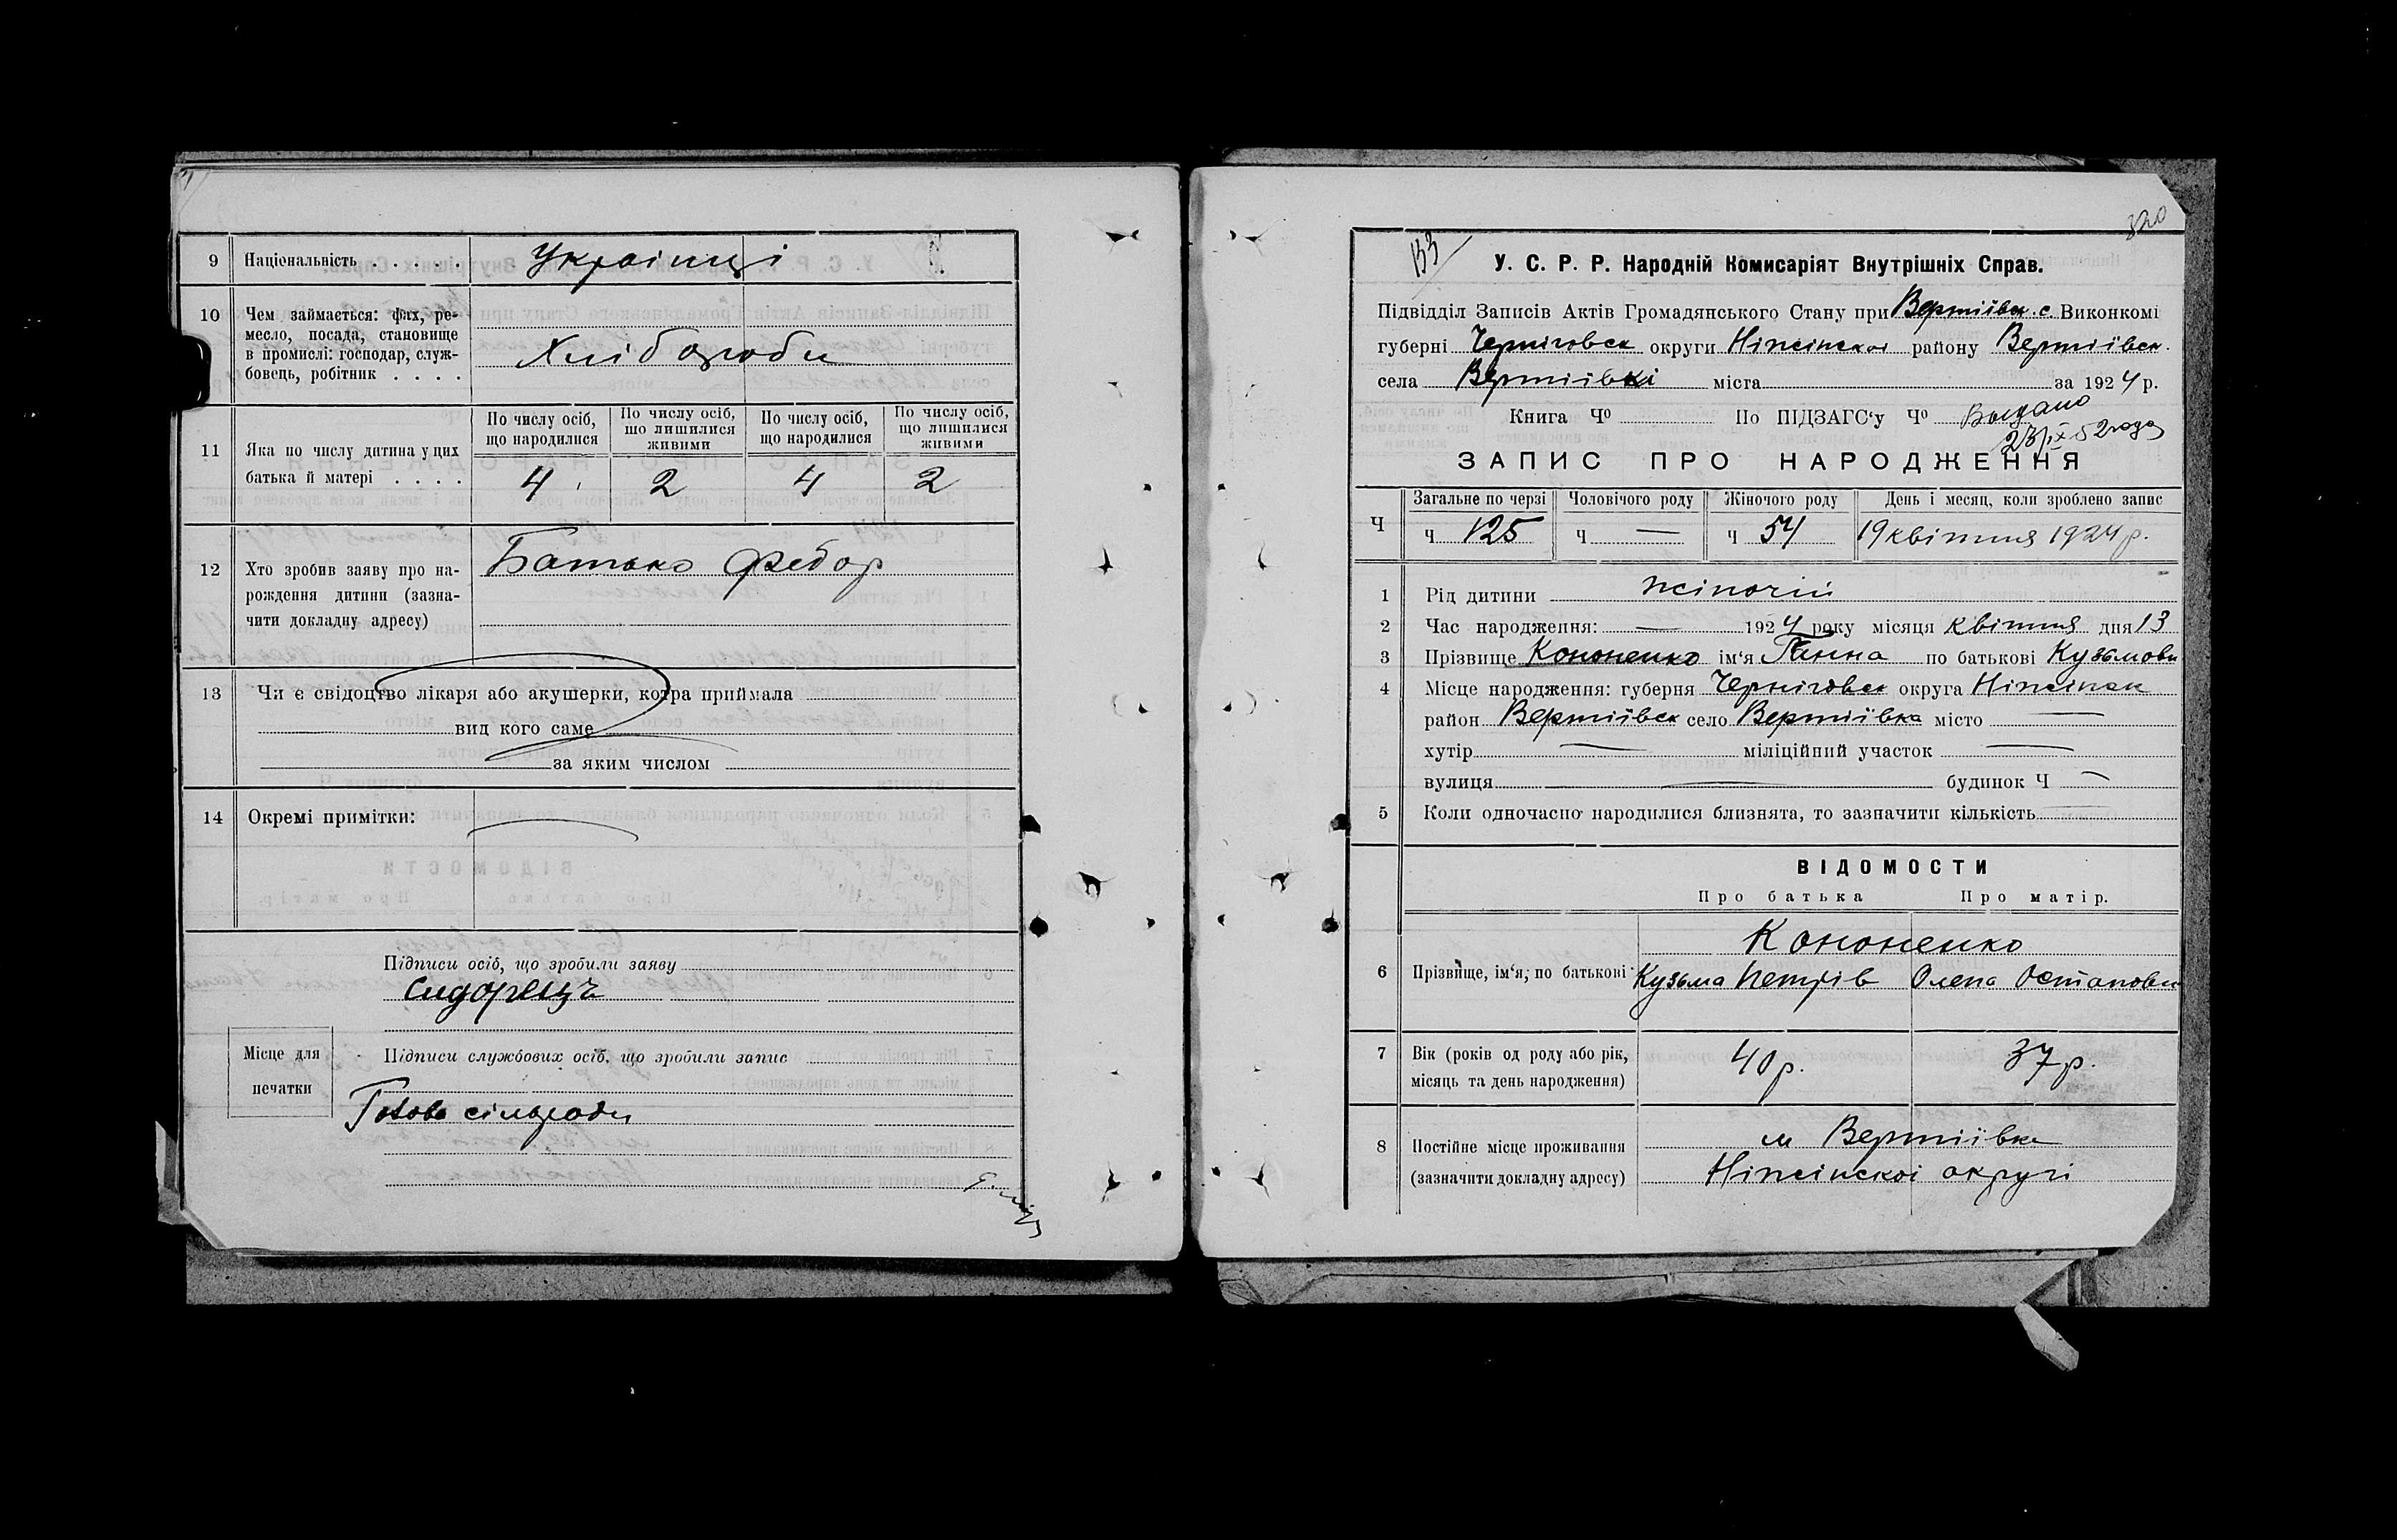 9 Національність . . . . . Українці
10 Чем займається: фах, ре-
месло, посада, становище
в промислі: господар, служ-
бовець, робітник . . . . Хліборобы
11 Яка по числу дитина у цих
батька й матері . . . .
По числу осіб, що народилися
По числу осіб, що лишилися живими
По числу осіб, що народилися
По числу осіб, що лишилися живими
4 2 4 2
12 Хто зробив заяву про на-
рождення дитини (зазна-
чити докладну адресу)
Батько Федор
13 Чи є свідоцтво лікаря або акушерки, котра приймала
вид кого саме
за яким числом
14 Окремі примітки:
Підписи осіб, що зробили заяву
Сидорець
Місце для
печатки
Підписи службових осіб, що зробили запис
Голова сільради
133
320
У. С. Р. Р. Народній Комисаріят Внутрішніх Справ.
Підвідділ Записів Актів Громадянського Стану при Вертіївск. с. Виконкомі
губерні Черніговск округи Ніжінскоі району Вертіївск.
села Вертіївкі міста за 1924 р.
Книга Чо По ПІДЗАГС‘у Чо Выдано
23/IX 52 года
ЗАПИС ПРО НАРОДЖЕННЯ
Ч
Загальне по черзі Чоловічого роду Жіночого роду День і месяц, коли зроблено запис
ч 125 ч — ч 54 19 квітня 1924 р.
1 Рід дитини жіночій
2 Час народження: — 1924 року місяця квітня дня 13
3 Прізвище Кононенко ім‘я Ганна по батькові Кузьмовн
4 Місце народження: губерня Черніговск округа Ніжінск
район Вертіївск село Вертіївка місто —
хутір — міліційний участок —
вулиця — будинок Ч —
5 Коли одночасно народилися близнята, то зазначити кількість
ВІДОМОСТИ
Про батька Про матір.
Кононенко
6 Прізвище, ім‘я, по батькові Кузьма Петрів Олена Остаповн
7 Вік (років од роду або рік,
місяць та день народження)
40 р. 37 р.
8 Постійне місце проживання
(зазначити докладну адресу)
м Вертіївка
Ніжінскоі округі